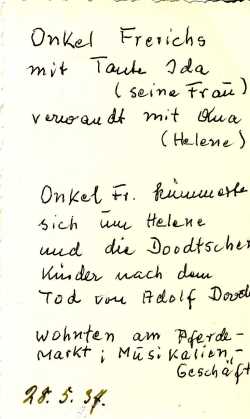 Onkel Frerichs
mit Tante Ida
(seine Frau)
verwandt mit Oma
(Helene)
Onkel Fr. kümmerte
sich um Helene
und die Doodtschen
Kinder nach dem
Tod von Adolf Doodt
wohnten am Pferde-
markt; Musikalien-
Geschäft
28.5.37.